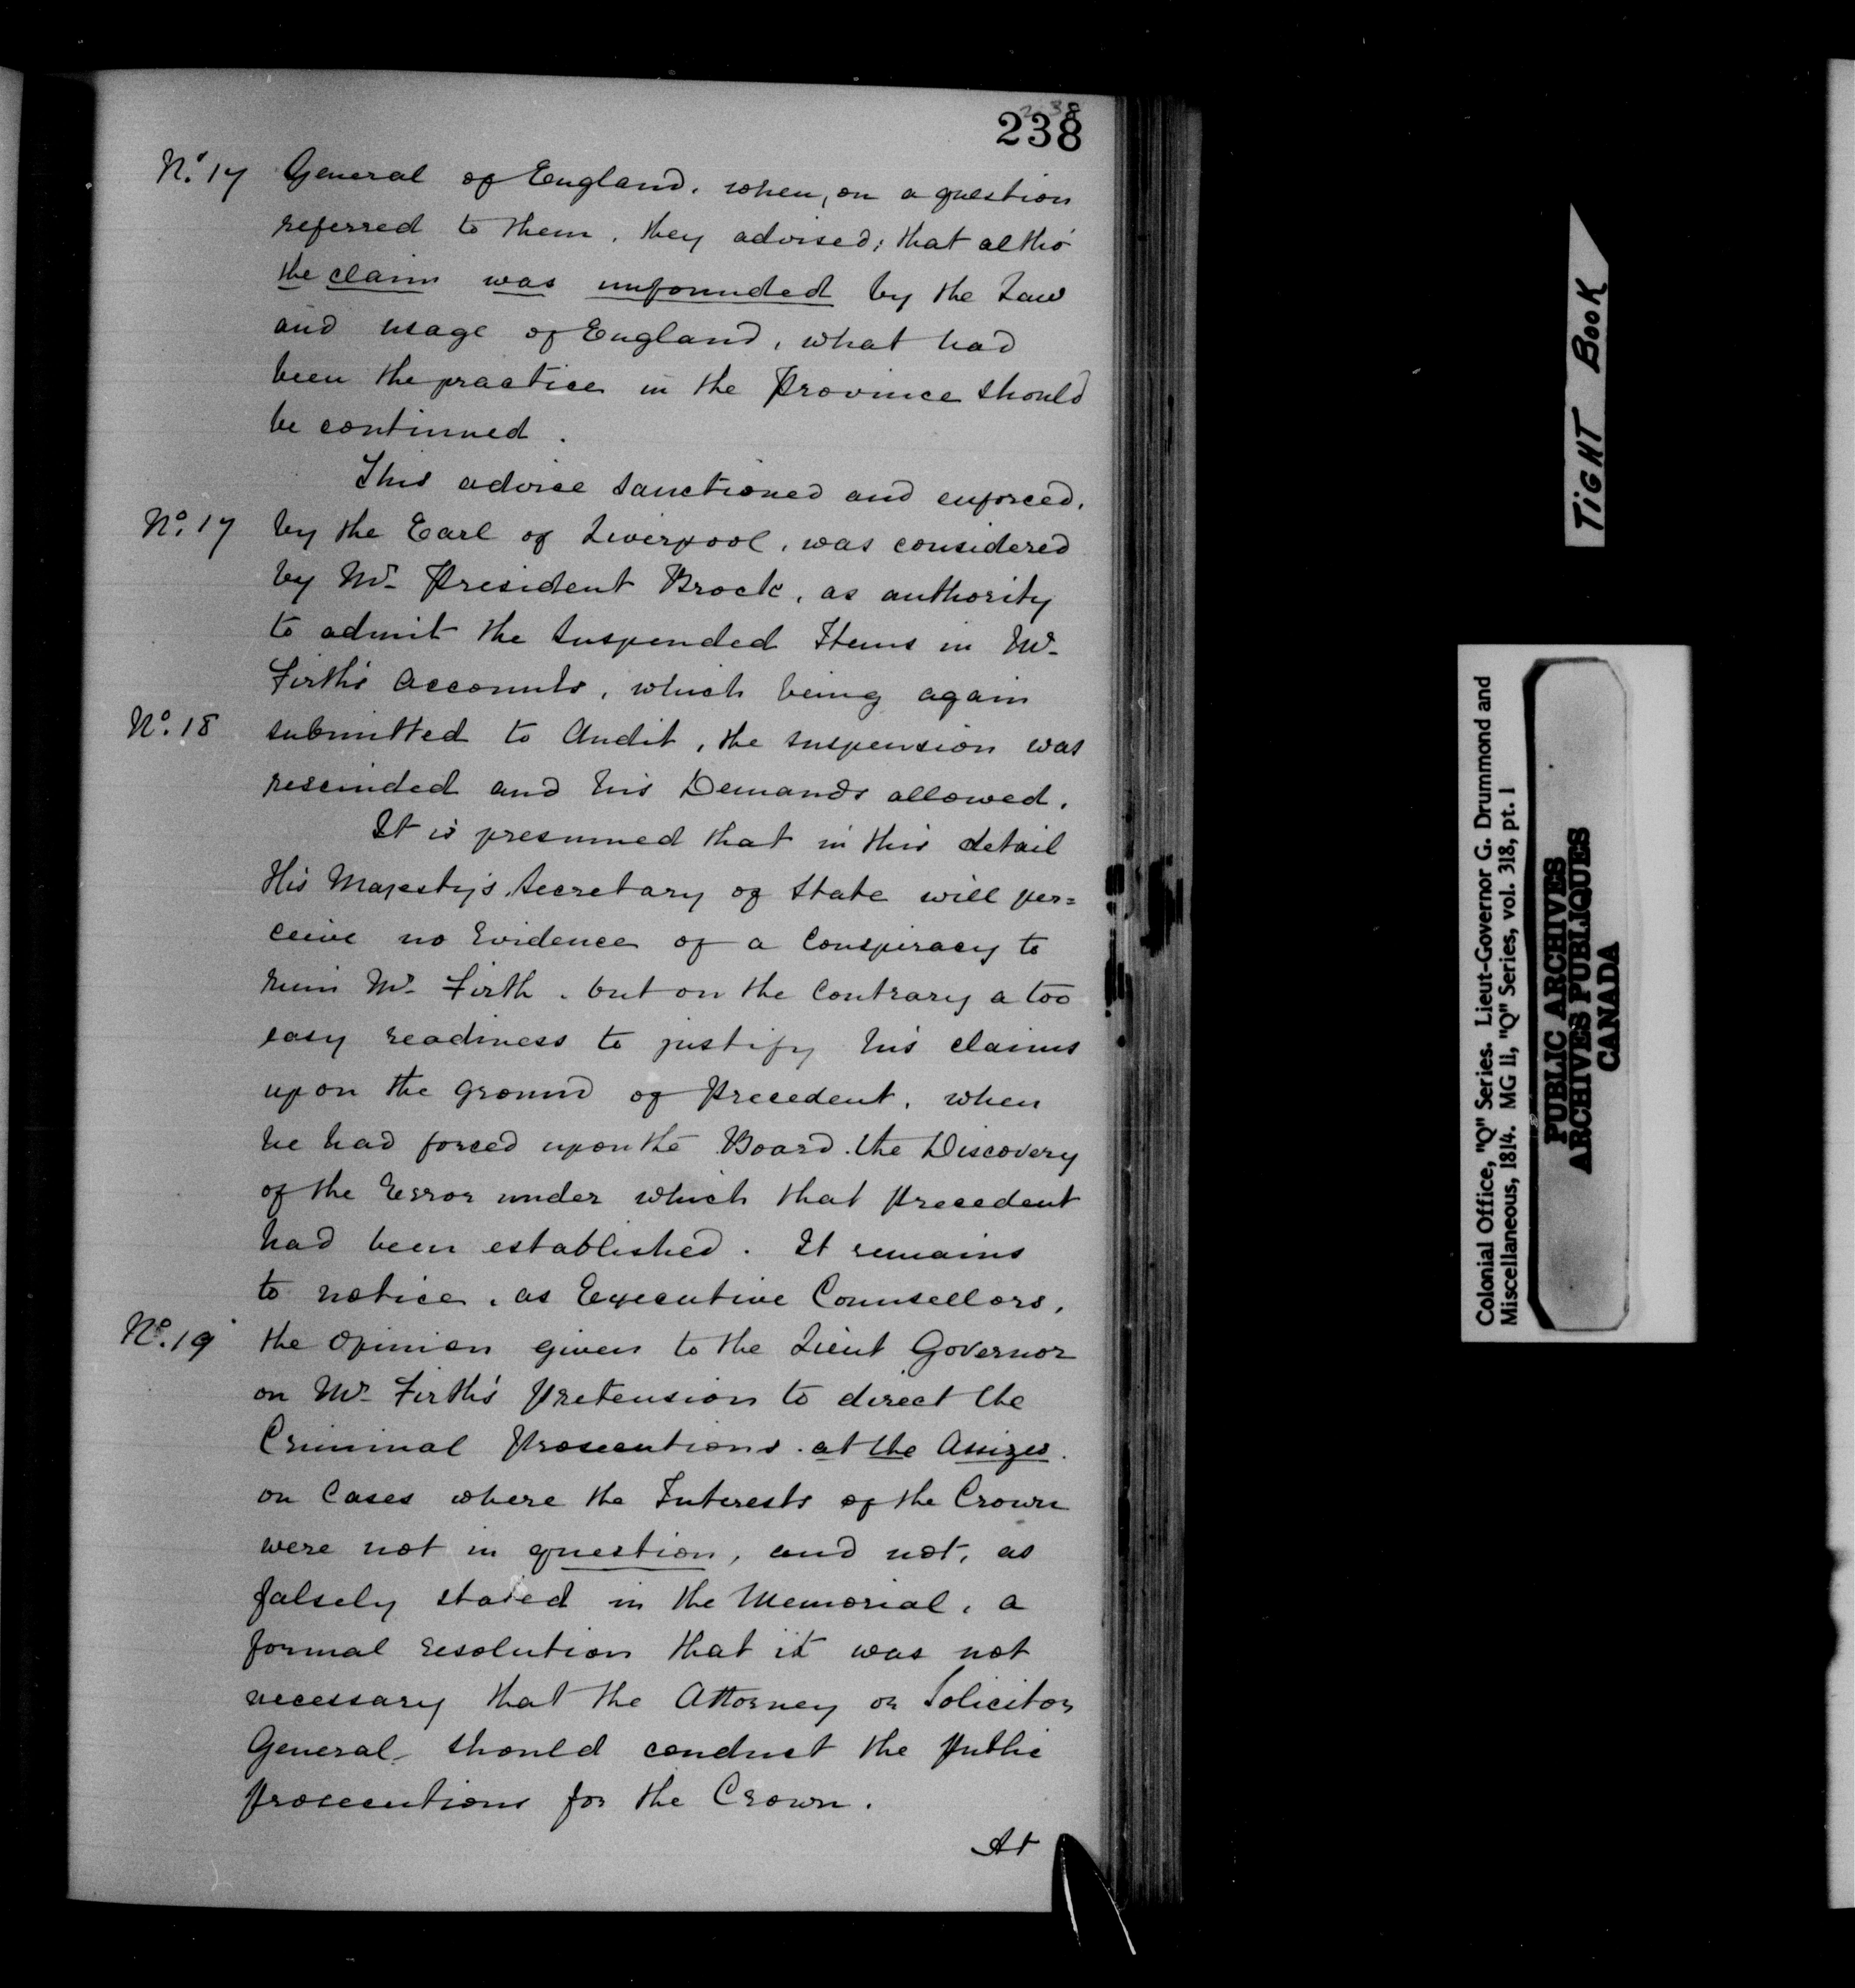 238
238
No. 17 General of England, when, on a question
referred to them, they advised; that altho'
the claim was unfounded by the Law
and usage of England, what had
been the practice in the Province should
be continued.
This advice sanctioned and enforced,
No. 17 by the Earl of Liverpool, was considered
by Mr. President Brock, as authority
to admit the suspended Items in Mr.
Firth's Accounts, which being again
No. 18 submitted to Audit, the suspension was
rescinded and his Demands allowed.
It is presumed that in this detail
His Majesty's Secretary of State will per=
ceive no Evidence of a Conspiracy to
ruin Mr. Firth, but on the Contrary a too
easy readiness to justify his claims
upon the ground of Precedent, when
he had forced upon the Board the Discovery
of the Error under which that Precedent
had been established. It remains
to notice, as Executive Counsellors,
No. 19 the Opinion given to the Lieut Governor
on Mr. Firth's Pretension to direct the
Criminal Prosecutions at the Assizes.
on Cases where the Interests of the Crown
were not in question, and not, as
falsely stated in the Memorial, a
formal resolution that it was not
necessary that the Attorney or Solicitor
General should conduct the Public
Prosecutions for the Crown.
At
TIGHT BOOK
Colonial Office, "Q" Series. Lieut-Governor G. Drummond and
Miscellaneous, 1814. MG 11, "Q" Series, vol. 318, pt. 1
PUBLIC ARCHIVES
ARCHIVES PUBLIQUES
CANADA